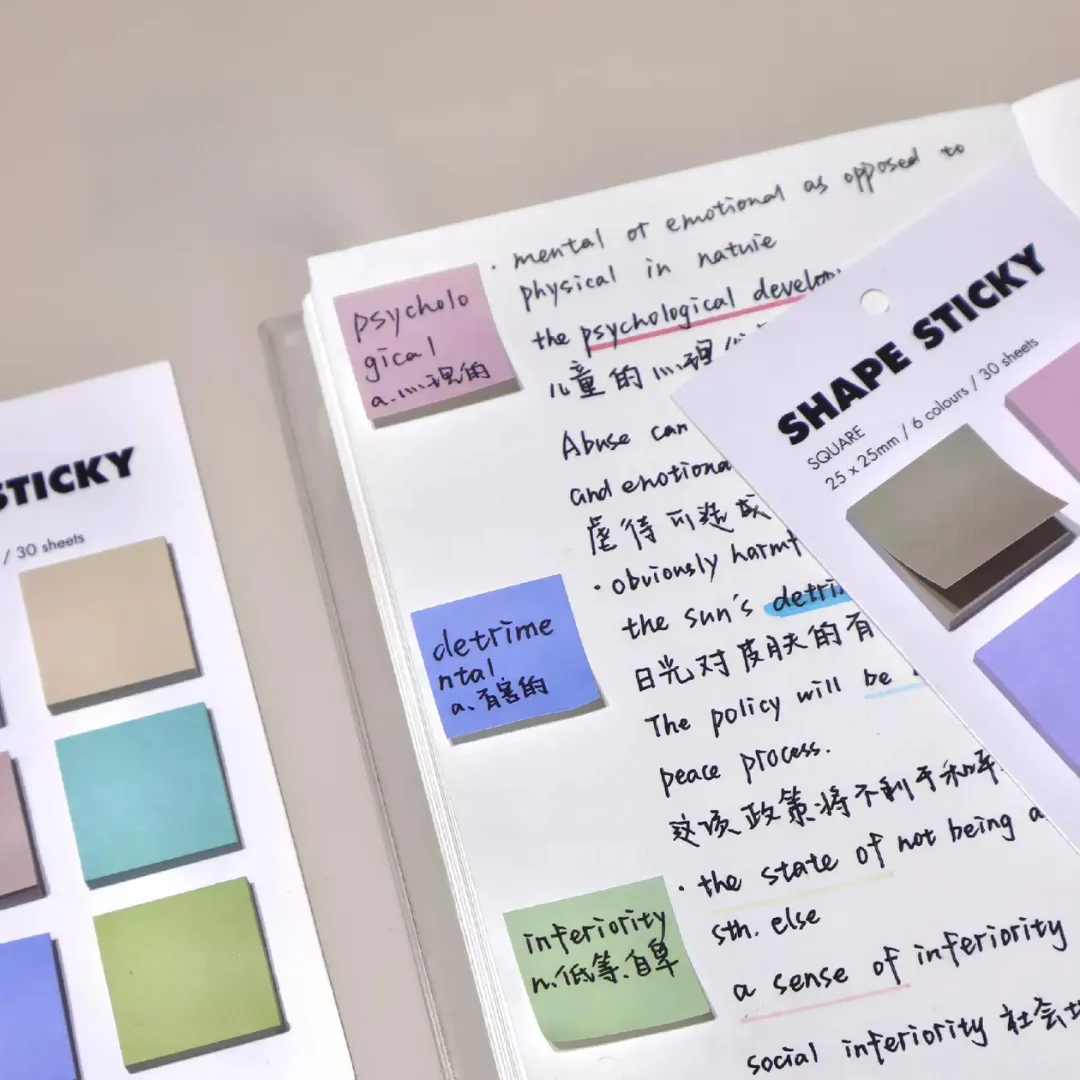 psycholo
gical
a.心理的
· mental or emotional as opposed to
physical in nature
the psychological develop
儿童的心理
Abuse can
and emotiona
虐待可造成
· obviously harmf
the sun's detri
日光对皮肤的有
detrime
ntal
a.有害的
The policy will be
peace process.
这项政策将不利于和平
· the state of not being a
sth. else
inferiority
n.低等.自卑
a sense of inferiority
social inferiority 社会
SHAPE STICKY
SQUARE
25 x 25mm / 6 colours / 30 sheets
STICKY
/ 30 sheets